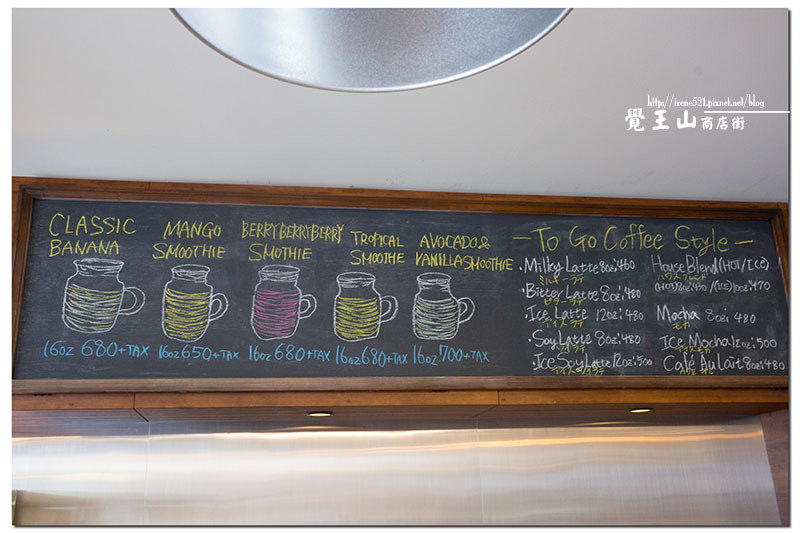 http://irene521.pixnet.net/blog
覺王山商店街
CLASSIC
BANANA
16oz 680+TAX
MANGO
SMOOTHIE
16oz 650+TAX
BERRYBERRYBERRY
SMOTHIE
16oz 680+TAX
TROPICAL
SMOOTHE
16oz 680+TAX
AVOCADO&
VANILLA SMOOTHIE
16oz 700+TAX
—To Go Coffee Style—
・Milky Latte 8oz 460
ミルキーラテ
・Bitter Latte 8oz 480
ビターラテ
・Ice Latte 12oz 480
アイスラテ
・Soy Latte 8oz 480
ソイラテ
・Ice Soy Latte 12oz 500
アイスソイラテ
House Blend (HOT/ICE)
ハウスブレンド
(HOT) 8oz 420 / (ICE) 10oz 470
Mocha 8oz 480
モカ
Ice Mocha 12oz 500
アイスモカ
Café Au Lait 8oz 480
カフェオレ